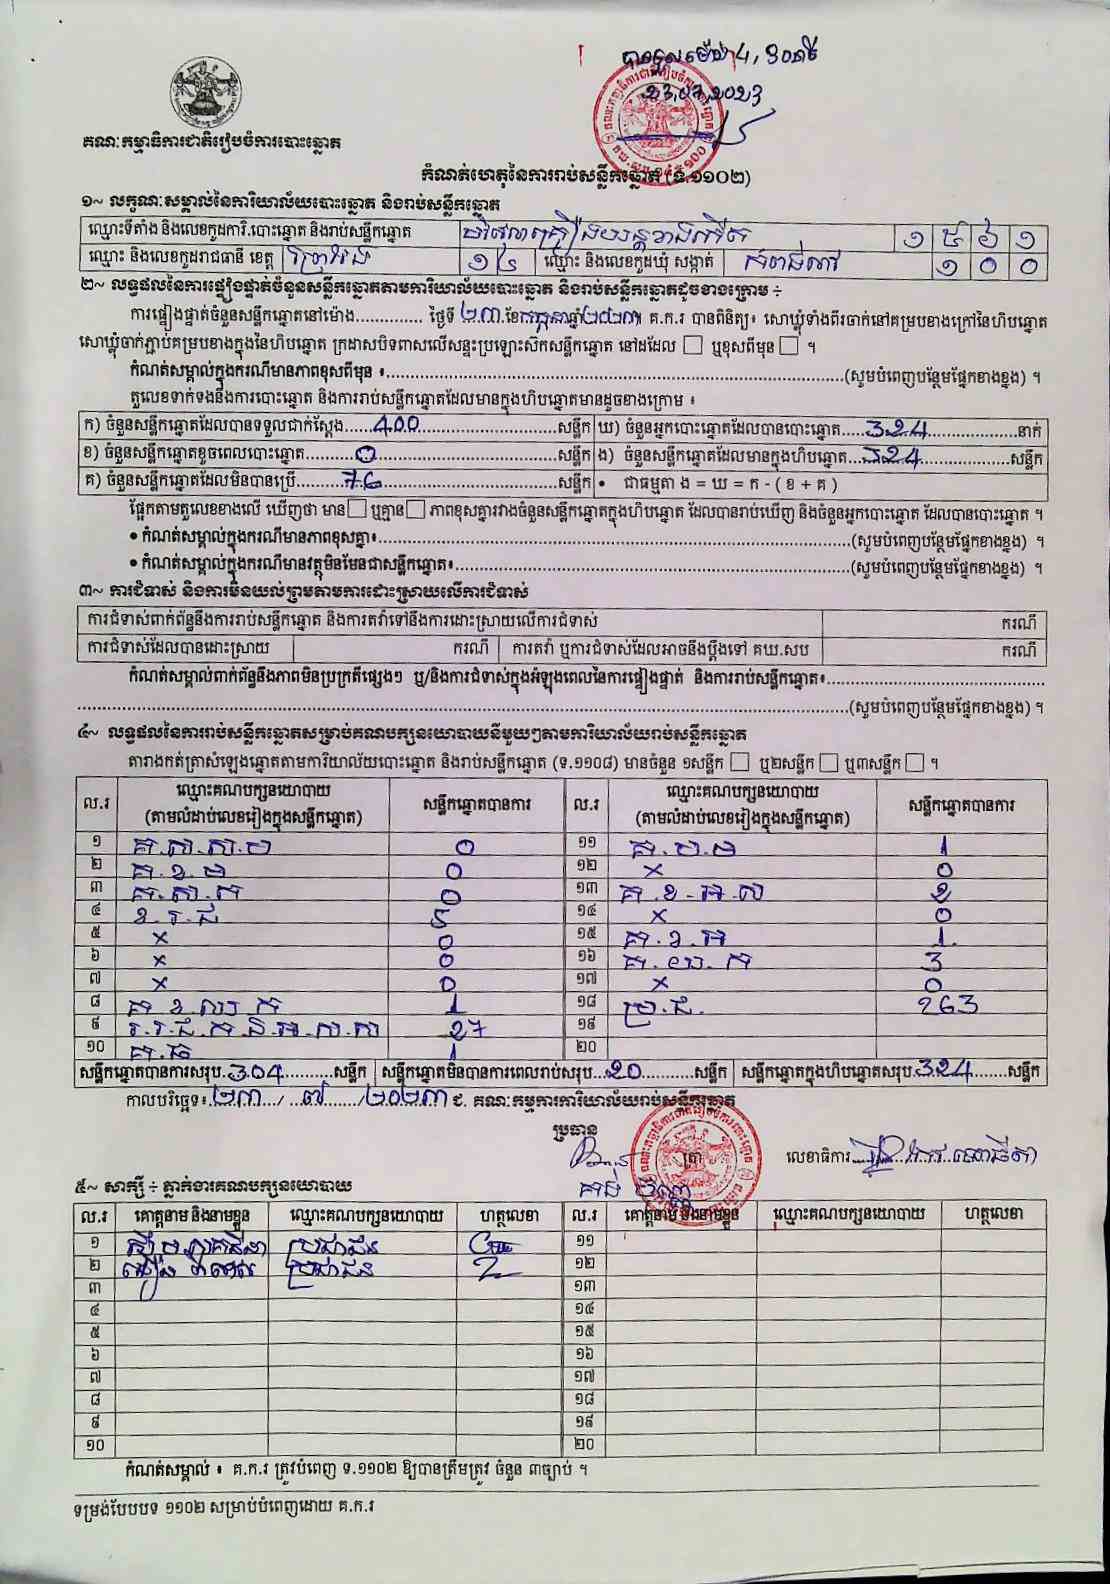 បានចូលម៉ោង 4, 30នាទី
23.07.2023
គណៈកម្មាធិការជាតិរៀបចំការបោះឆ្នោត
កំណត់ហេតុនៃការរាប់សន្លឹកឆ្នោត (ទ.១១០២)
១~ លក្ខណៈសម្គាល់នៃការិយាល័យបោះឆ្នោត និងរាប់សន្លឹកឆ្នោត
ឈ្មោះទីតាំង និងលេខកូដការិ.បោះឆ្នោត និងរាប់សន្លឹកឆ្នោត ១ ៥ ៦ ១
ឈ្មោះ និងលេខកូដរាជធានី ខេត្ត ព្រៃវែង ១៤ ឈ្មោះ និងលេខកូដឃុំ សង្កាត់ ១ ០ ០
២~ លទ្ធផលនៃការផ្ទៀងផ្ទាត់ចំនួនសន្លឹកឆ្នោតតាមការិយាល័យបោះឆ្នោត និងរាប់សន្លឹកឆ្នោតដូចខាងក្រោម ÷
ការផ្ទៀងផ្ទាត់ចំនួនសន្លឹកឆ្នោតនៅម៉ោង.............. ថ្ងៃទី ២៣ ខែកក្កដាឆ្នាំ២០២៣ គ.ក.រ បានពិនិត្យ៖ សោឃ្លុំទាំងពីរចាក់នៅគម្របខាងក្រៅនៃហិបឆ្នោត
សោឃ្លុំចាក់ភ្ជាប់គម្របខាងក្នុងនៃហិបឆ្នោត ក្រដាសបិទពាសលើសន្ទះប្រឡោះស៊កសន្លឹកឆ្នោត នៅដដែល ☐ ឬខុសពីមុន ☐ ។
កំណត់សម្គាល់ក្នុងករណីមានភាពខុសពីមុន ៖..........(សូមបំពេញបន្ថែមផ្នែកខាងខ្នង) ។
តួលេខទាក់ទងនឹងការបោះឆ្នោត និងការរាប់សន្លឹកឆ្នោតដែលមានក្នុងហិបឆ្នោតមានដូចខាងក្រោម ៖
ក) ចំនួនសន្លឹកឆ្នោតដែលបានទទួលជាក់ស្តែង.....400.....សន្លឹក ឃ) ចំនួនអ្នកបោះឆ្នោតដែលបានបោះឆ្នោត.....324.....នាក់
ខ) ចំនួនសន្លឹកឆ្នោតខូចពេលបោះឆ្នោត.....0.....សន្លឹក ង) ចំនួនសន្លឹកឆ្នោតដែលមានក្នុងហិបឆ្នោត...324.....សន្លឹក
គ) ចំនួនសន្លឹកឆ្នោតដែលមិនបានប្រើ.....76.....សន្លឹក • ជាធម្មតា ង = ឃ = ក - ( ខ + គ )
ផ្អែកតាមតួលេខខាងលើ ឃើញថា មាន ☐ ឬគ្មាន ☐ ភាពខុសគ្នារវាងចំនួនសន្លឹកឆ្នោតក្នុងហិបឆ្នោត ដែលបានរាប់ឃើញ និងចំនួនអ្នកបោះឆ្នោត ដែលបានបោះឆ្នោត ។
• កំណត់សម្គាល់ក្នុងករណីមានភាពខុសគ្នា៖..........(សូមបំពេញបន្ថែមផ្នែកខាងខ្នង) ។
• កំណត់សម្គាល់ក្នុងករណីមានវត្ថុមិនមែនជាសន្លឹកឆ្នោត៖..........(សូមបំពេញបន្ថែមផ្នែកខាងខ្នង) ។
៣~ ការជំទាស់ និងការមិនយល់ព្រមតាមការដោះស្រាយលើការជំទាស់
ការជំទាស់ពាក់ព័ន្ធនឹងការរាប់សន្លឹកឆ្នោត និងការតវ៉ាទៅនឹងការដោះស្រាយលើការជំទាស់ ករណី
ការជំទាស់ដែលបានដោះស្រាយ ករណី ការតវ៉ា ឬការជំទាស់ដែលអាចនឹងប្តឹងទៅ គឃ.សប ករណី
កំណត់សម្គាល់ពាក់ព័ន្ធនឹងភាពមិនប្រក្រតីផ្សេងៗ ឬ/និងការជំទាស់ក្នុងអំឡុងពេលនៃការផ្ទៀងផ្ទាត់ និងការរាប់សន្លឹកឆ្នោត៖..........
..........(សូមបំពេញបន្ថែមផ្នែកខាងខ្នង) ។
៤~ លទ្ធផលនៃការរាប់សន្លឹកឆ្នោតសម្រាប់គណបក្សនយោបាយនីមួយៗតាមការិយាល័យរាប់សន្លឹកឆ្នោត
តារាងកត់ត្រាសំឡេងឆ្នោតតាមការិយាល័យបោះឆ្នោត និងរាប់សន្លឹកឆ្នោត (ទ.១១០៨) មានចំនួន ១សន្លឹក ☐ ឬ២សន្លឹក ☐ ឬ៣សន្លឹក ☐ ។
ល.រ ឈ្មោះគណបក្សនយោបាយ (តាមលំដាប់លេខរៀងក្នុងសន្លឹកឆ្នោត) សន្លឹកឆ្នោតបានការ ល.រ ឈ្មោះគណបក្សនយោបាយ (តាមលំដាប់លេខរៀងក្នុងសន្លឹកឆ្នោត) សន្លឹកឆ្នោតបានការ
១ 0 ១១ 1
២ គ.ខ.ម 0 ១២ x 0
៣ គ.ស.ក 0 ១៣ គ.ខ.អ.ស 2
៤ ខ.រ.ជ 5 ១៤ x 0
៥ x 0 ១៥ គ.ខ.អ 1
៦ x 0 ១៦ គ.យ.ក 3
៧ x 0 ១៧ x 0
៨ 1 ១៨ ប្រ.ជ. 263
៩ 27 ១៩
១០ គ.ធ 1 ២០
សន្លឹកឆ្នោតបានការសរុប.304..........សន្លឹក សន្លឹកឆ្នោតមិនបានការពេលរាប់សរុប...20.........សន្លឹក សន្លឹកឆ្នោតក្នុងហិបឆ្នោតសរុប.324.......សន្លឹក
កាលបរិច្ឆេទ៖ ២៣ / ៧ / ២០២៣ ជ. គណៈកម្មការការិយាល័យរាប់សន្លឹកឆ្នោត
ប្រធាន
ត្រា លេខាធិការ
៥~ សាក្សី ÷ ភ្នាក់ងារគណបក្សនយោបាយ
ល.រ គោត្តនាម និងនាមខ្លួន ឈ្មោះគណបក្សនយោបាយ ហត្ថលេខា ល.រ គោត្តនាម និងនាមខ្លួន ឈ្មោះគណបក្សនយោបាយ ហត្ថលេខា
១ ប្រជាជន ១១
២ ប្រជាជន ១២
៣ ១៣
៤ ១៤
៥ ១៥
៦ ១៦
៧ ១៧
៨ ១៨
៩ ១៩
១០ ២០
កំណត់សម្គាល់ ៖ គ.ក.រ ត្រូវបំពេញ ទ.១១០២ ឱ្យបានត្រឹមត្រូវ ចំនួន ៣ច្បាប់ ។
ទម្រង់បែបបទ ១១០២ សម្រាប់បំពេញដោយ គ.ក.រ